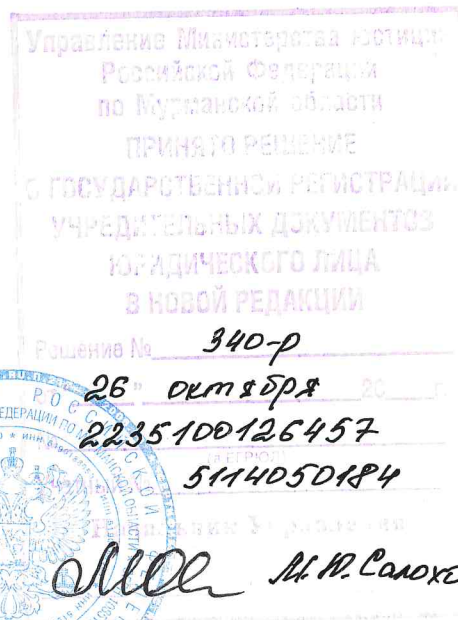 Управление Министерства юстиции
Российской Федерации
по Мурманской области
ПРИНЯТО РЕШЕНИЕ
О ГОСУДАРСТВЕННОЙ РЕГИСТРАЦИИ
УЧРЕДИТЕЛЬНЫХ ДОКУМЕНТОВ
ЮРИДИЧЕСКОГО ЛИЦА
В НОВОЙ РЕДАКЦИИ
Решение № 340-р
26 " октября 20 г.
2235100126457
5114050184
Начальник Управления
М.Ю.